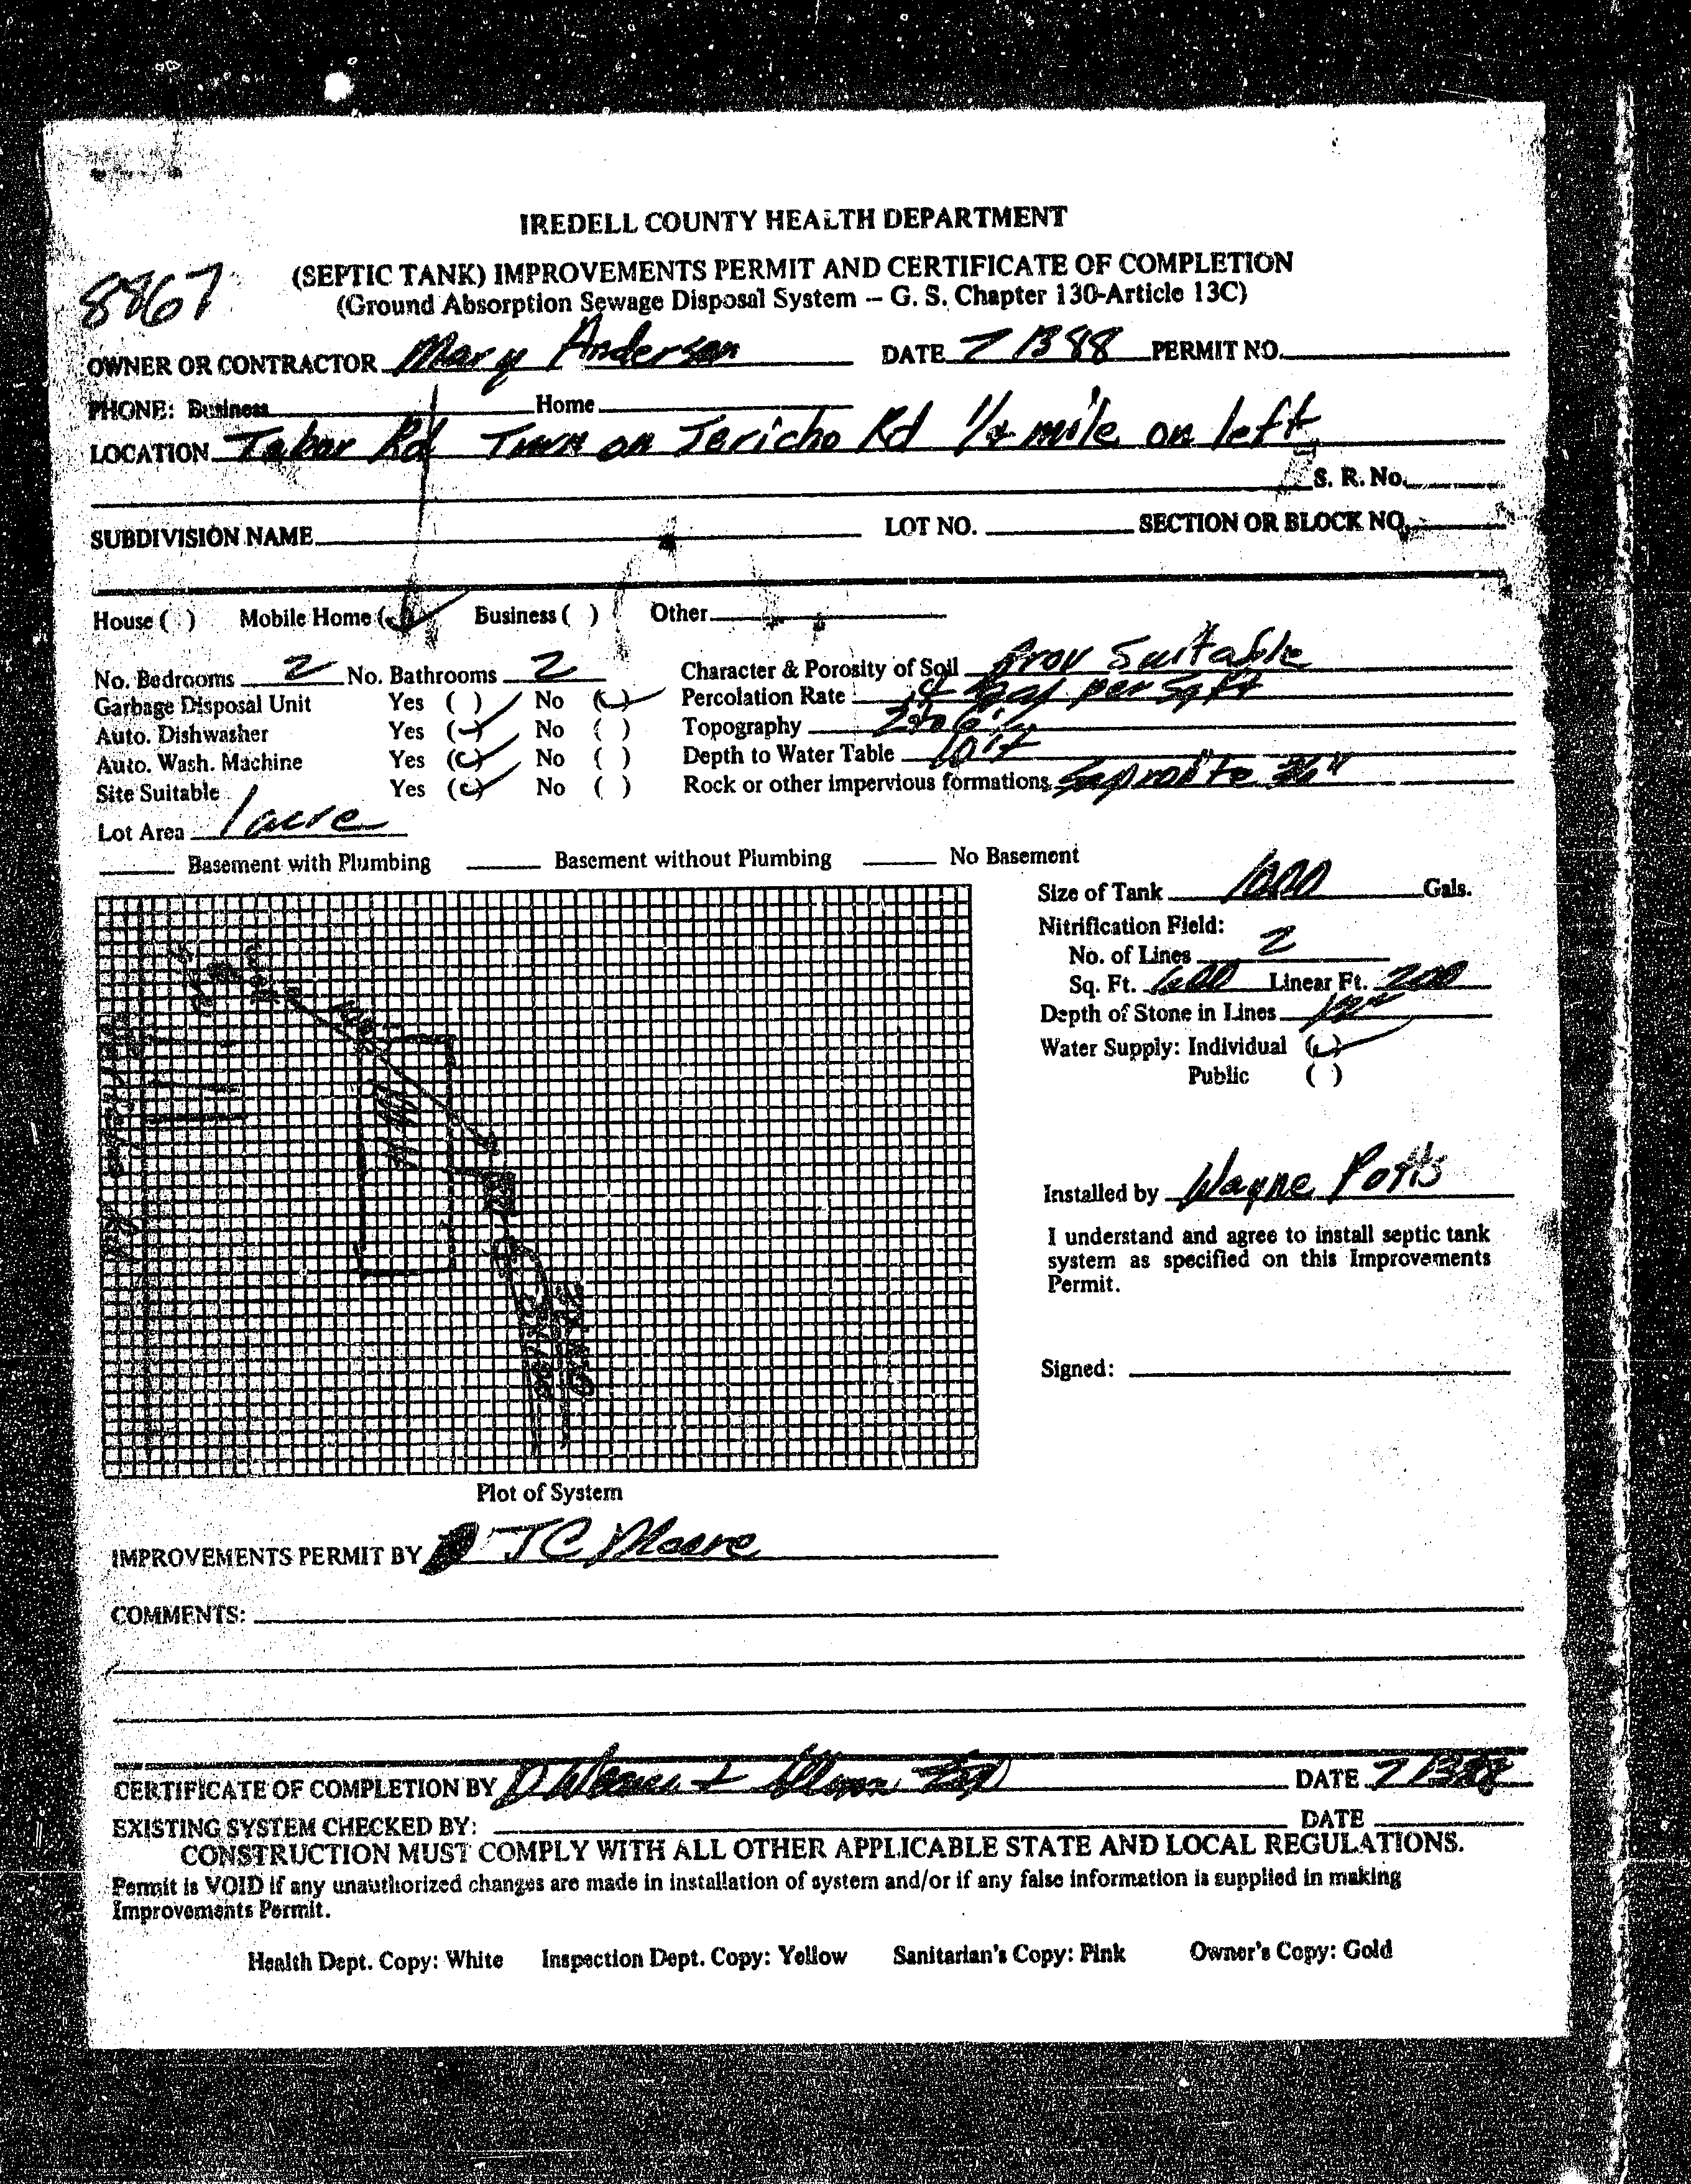 IREDELL COUNTY HEALTH DEPARTMENT
(SEPTIC TANK) IMPROVEMENTS PERMIT AND CERTIFICATE OF COMPLETION
8867 (Ground Absorption Sewage Disposal System – G. S. Chapter 130-Article 13C)
OWNER OR CONTRACTOR Mary Anderson DATE 7 13 88 PERMIT NO.
PHONE: Business Home
LOCATION Tabor Rd Turn on Jericho Rd 1/4 mile on left
S. R. No.
SUBDIVISION NAME LOT NO. SECTION OR BLOCK NO.
House ( ) Mobile Home ( ) Business ( ) Other
No. Bedrooms 2 No. Bathrooms 2 Character & Porosity of Soil Prov Suitable
Garbage Disposal Unit Yes ( ) No ( ) Percolation Rate .4 gal per sq ft
Auto. Dishwasher Yes ( ) No ( ) Topography 2 to 6%
Auto. Wash. Machine Yes ( ) No ( ) Depth to Water Table 10'+
Site Suitable Yes ( ) No ( ) Rock or other impervious formations Saprolite 36"
Lot Area 1 acre
Basement with Plumbing Basement without Plumbing No Basement
Size of Tank 1000 Gals.
Nitrification Field:
No. of Lines 2
Sq. Ft. 600 Linear Ft. 200
Depth of Stone in Lines 12"
Water Supply: Individual ( )
Public ( )
Installed by Wayne Potts
I understand and agree to install septic tank
system as specified on this Improvements
Permit.
Signed:
Plot of System
IMPROVEMENTS PERMIT BY JC Moore
COMMENTS:
CERTIFICATE OF COMPLETION BY DATE 7 13 88
EXISTING SYSTEM CHECKED BY: DATE
CONSTRUCTION MUST COMPLY WITH ALL OTHER APPLICABLE STATE AND LOCAL REGULATIONS.
Permit is VOID if any unauthorized changes are made in installation of system and/or if any false information is supplied in making
Improvements Permit.
Health Dept. Copy: White Inspection Dept. Copy: Yellow Sanitarian's Copy: Pink Owner's Copy: Gold